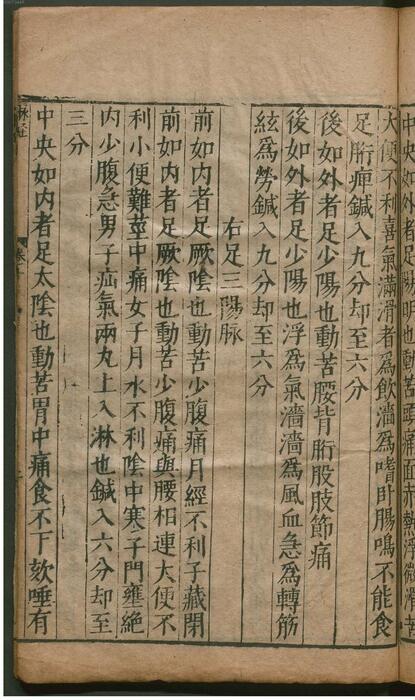 中央如外者足陽明也動苦頭痛面赤熱浮微滑苦
大便不利喜氣滿滑者爲飲濇爲嗜卧腸鳴不能食
足胻痺鍼入九分却至六分
後如外者足少陽也動苦腰背胻股肢節痛
後如外者足少陽也浮爲氣濇濇爲風血急爲轉筋
絃爲勞鍼入九分却至六分
右足三陽脉
前如内者足厥陰也動苦少腹痛月經不利子藏閉
前如内者足厥陰也動苦少腹痛與腰相連大便不
利小便難莖中痛女子月水不利陰中寒子門壅絶
内少腹急男子疝氣兩丸上入淋也鍼入六分却至
三分
中央如内者足太陰也動苦胃中痛食不下欬唾有
脉經
卷十